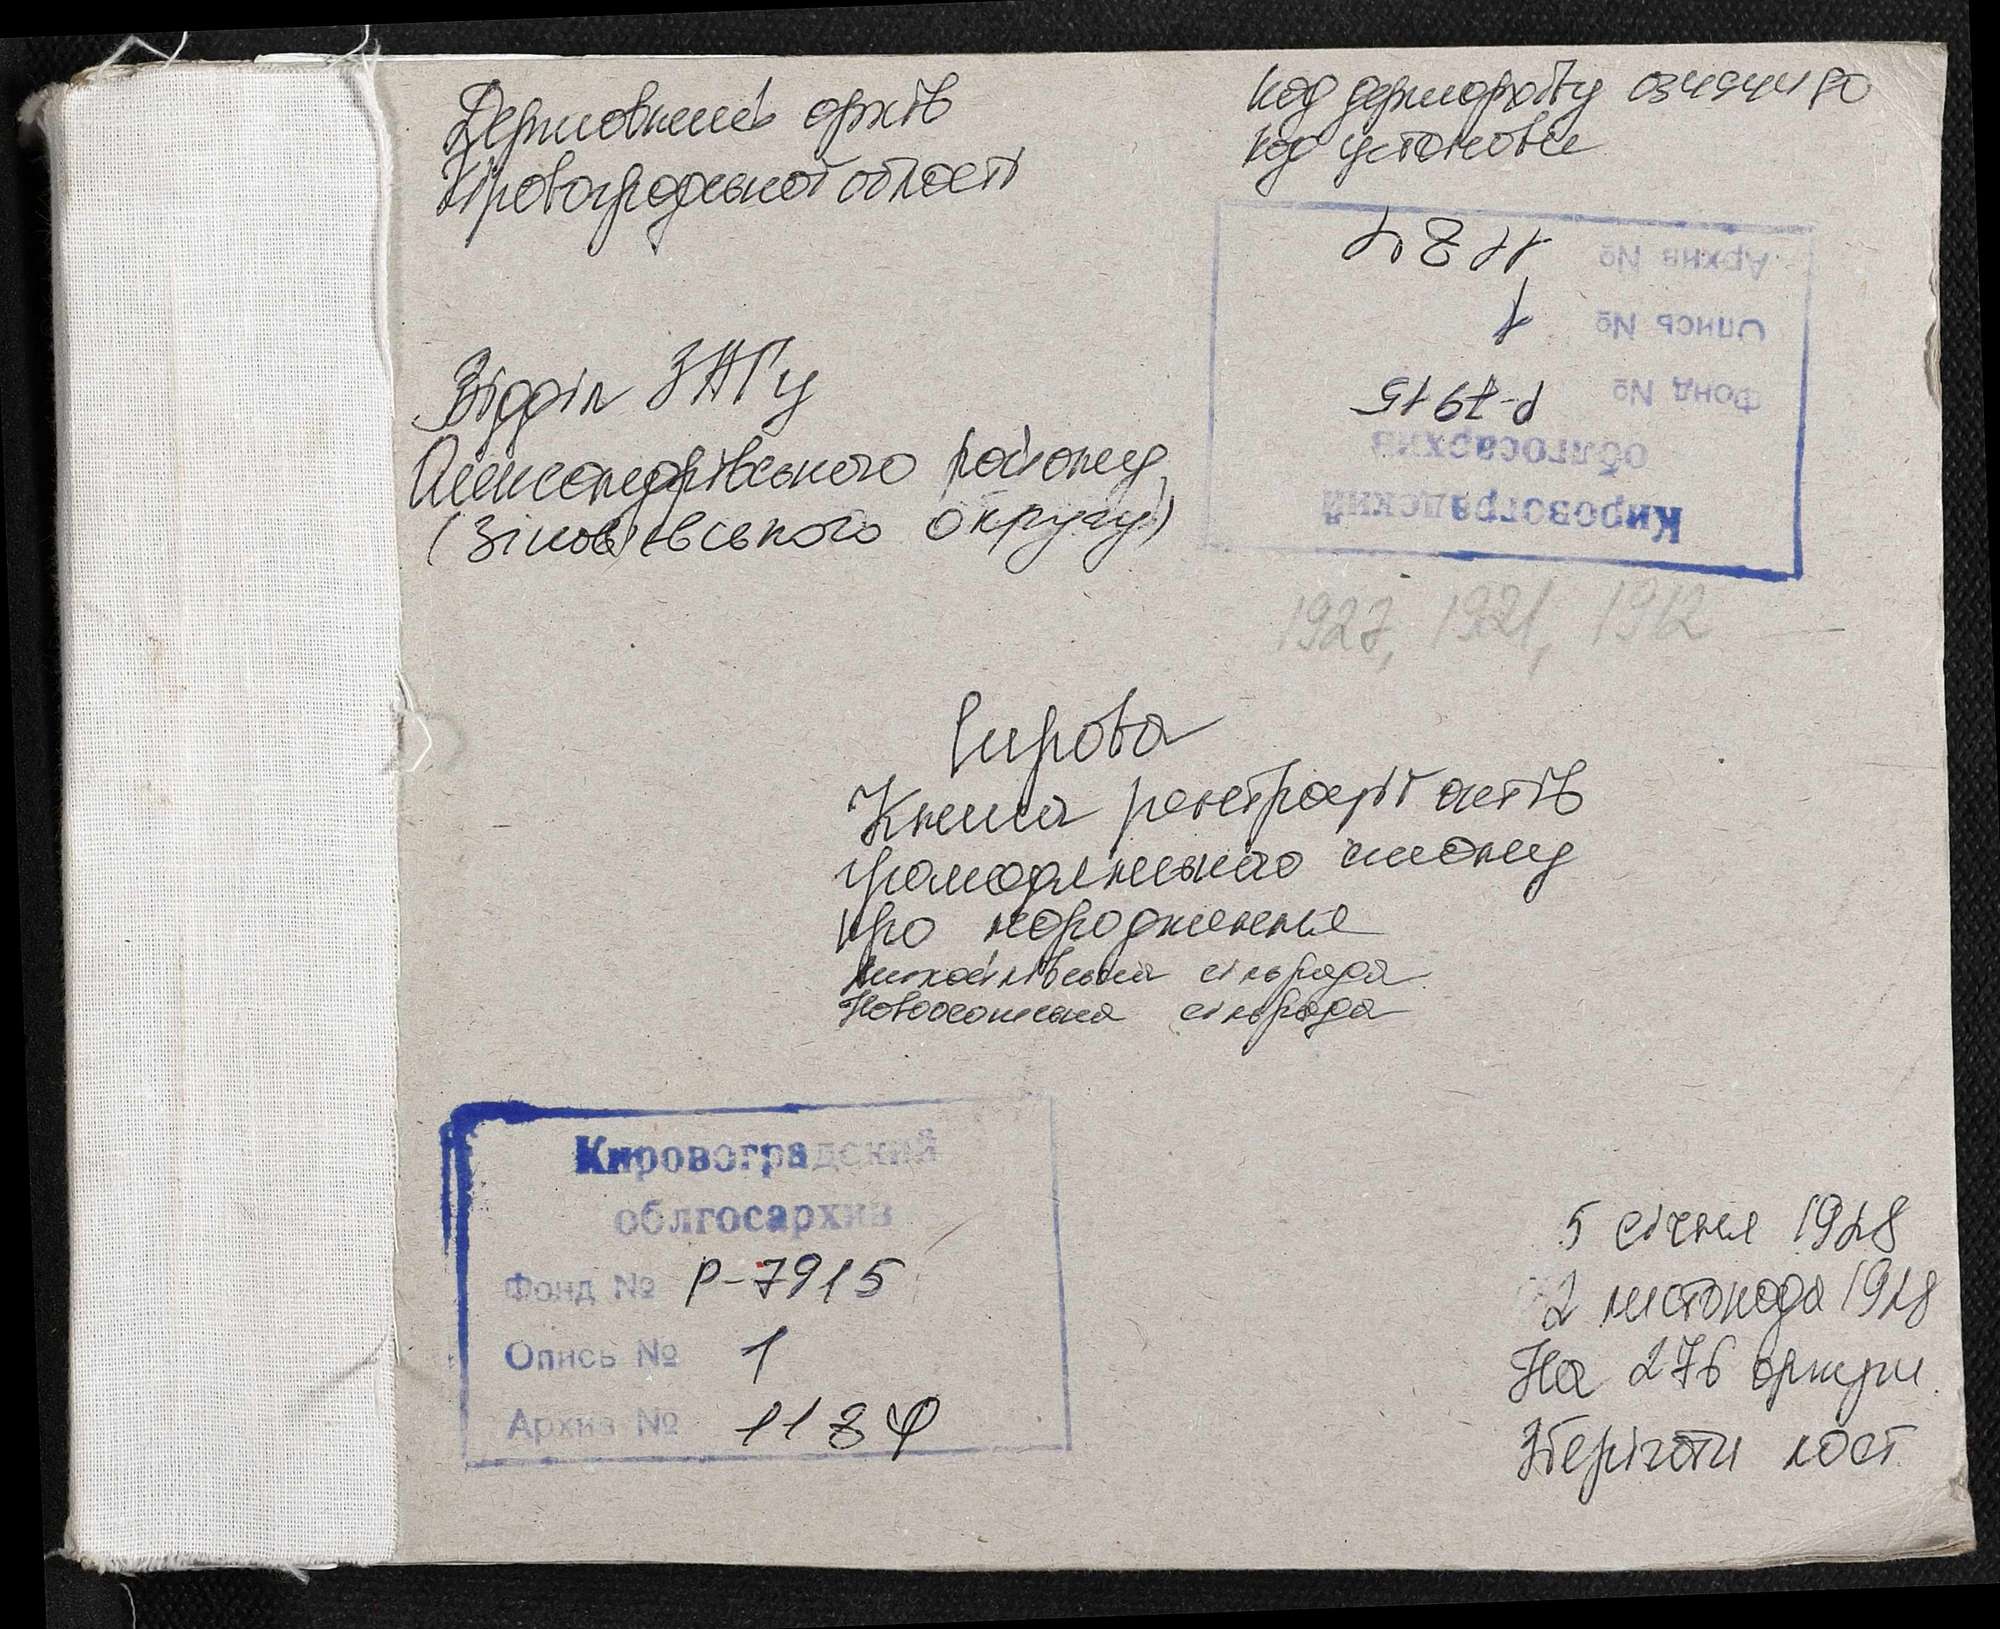 Державний архів
Кіровоградської області
Код держархіву 03494480
Код установи
Архив № 1184
Опись № 1
Фонд № Р-7915
облгосархив
Кировоградский
Відділ ЗАГу
Олександрівського району
(Зінов'євського округу)
1927, 1921, 1912
Справа
Книга реєстрації актів
громадянського стану
про народження
Михайлівська сільрада
Новоосотська сільрада
Кировоградский
облгосархив
Фонд № Р-7915
Опись № 1
Архив № 1184
5 січня 1928
2 листопада 1928
На 276 аркуш.
Зберігати пост.